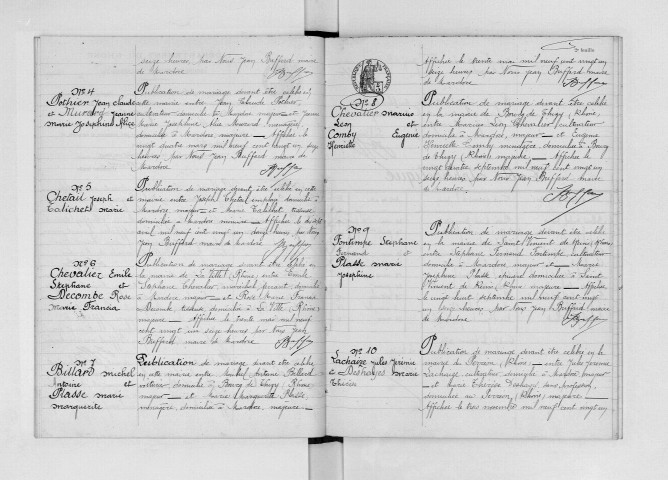 seize heures, par Nous Jean Buffard maire
de Mardore
N° 4
Pothier Jean Claude
et Murard Jeanne
Marie Joséphine Alice
Publication de mariage devant être célébré en
cette mairie entre Jean Claude Pothier,
cultivateur domicilié à Mardore majeur et Jeanne
Marie Joséphine Alice Murard ménagère
domiciliée à Mardore majeure — Affichée le
vingt quatre mars mil neuf cent vingt un
heures par Nous Jean Buffard maire de
Mardore
N° 5
Chetail Joseph et
Talichet Marie
Publication de mariage devant être célébré en cette
mairie entre Joseph Chetail employé domicilié à
Mardore majeur — et Marie Talichet
domiciliée à Mardore majeure — Affichée le
avril mil neuf cent vingt un heures par Nous
Jean Buffard maire de Mardore
N° 6
Chevalier Emile
Stéphane et
Decombe Rose
Marie Francia
Publication de mariage devant être célébré en
la mairie de La Ville, Rhône, entre Emile
Stéphane Chevalier domicilié
à Mardore majeur — et Rose Marie Francia
Decombe domiciliée à La Ville (Rhône)
majeure — Affichée le trente mai mil neuf
cent vingt un seize heures par Nous Jean
Buffard maire de Mardore
N° 7
Billard Michel
Antoine et
Plasse Marie
Marguerite
Publication de mariage devant être célébré
en cette mairie entre Michel Antoine Billard
domicilié à Bourg de Thizy (Rhône)
majeur — et Marie Marguerite Plasse,
ménagère, domiciliée à Mardore, majeure —
2e feuille
Affichée le trente mai mil neuf cent vingt un
seize heures par Nous Jean Buffard maire
de Mardore
N° 8
Chevalier Marius
Léon et
Comby Eugénie
Henriette
Publication de mariage devant être célébré
en la mairie de Bourg de Thizy (Rhône),
entre Marius Léon Chevalier, cultivateur
domicilié à Mardore, majeur — et Eugénie
Henriette Comby domiciliée à Bourg
de Thizy (Rhône) majeure — Affichée le
vingt quatre septembre mil neuf cent vingt un
seize heures par Nous Jean Buffard maire
de Mardore
N° 9
Fontimpe Stéphane
Fernand et
Plasse Marie
Joséphine
Publication de mariage devant être célébré
en la mairie de Saint Vincent de Reins (Rhône)
entre Stéphane Fernand Fontimpe, cultivateur
domicilié à Mardore majeur — et Marie
Joséphine Plasse domiciliée à Saint
Vincent de Reins, Rhône majeure — Affichée
le vingt huit septembre mil neuf cent vingt
un heures, par Nous Jean Buffard maire
de Mardore
N° 10
Lachaize Jules Jérémie
et Deshayes Marie
Thérèse
Publication de mariage devant être célébré en la
mairie de (Rhône) entre Jules Jérémie
Lachaize cultivateur domicilié à Mardore majeur
— et Marie Thérèse Deshayes sans profession,
domiciliée à (Rhône) majeure —
Affichée le trois novembre mil neuf cent vingt un